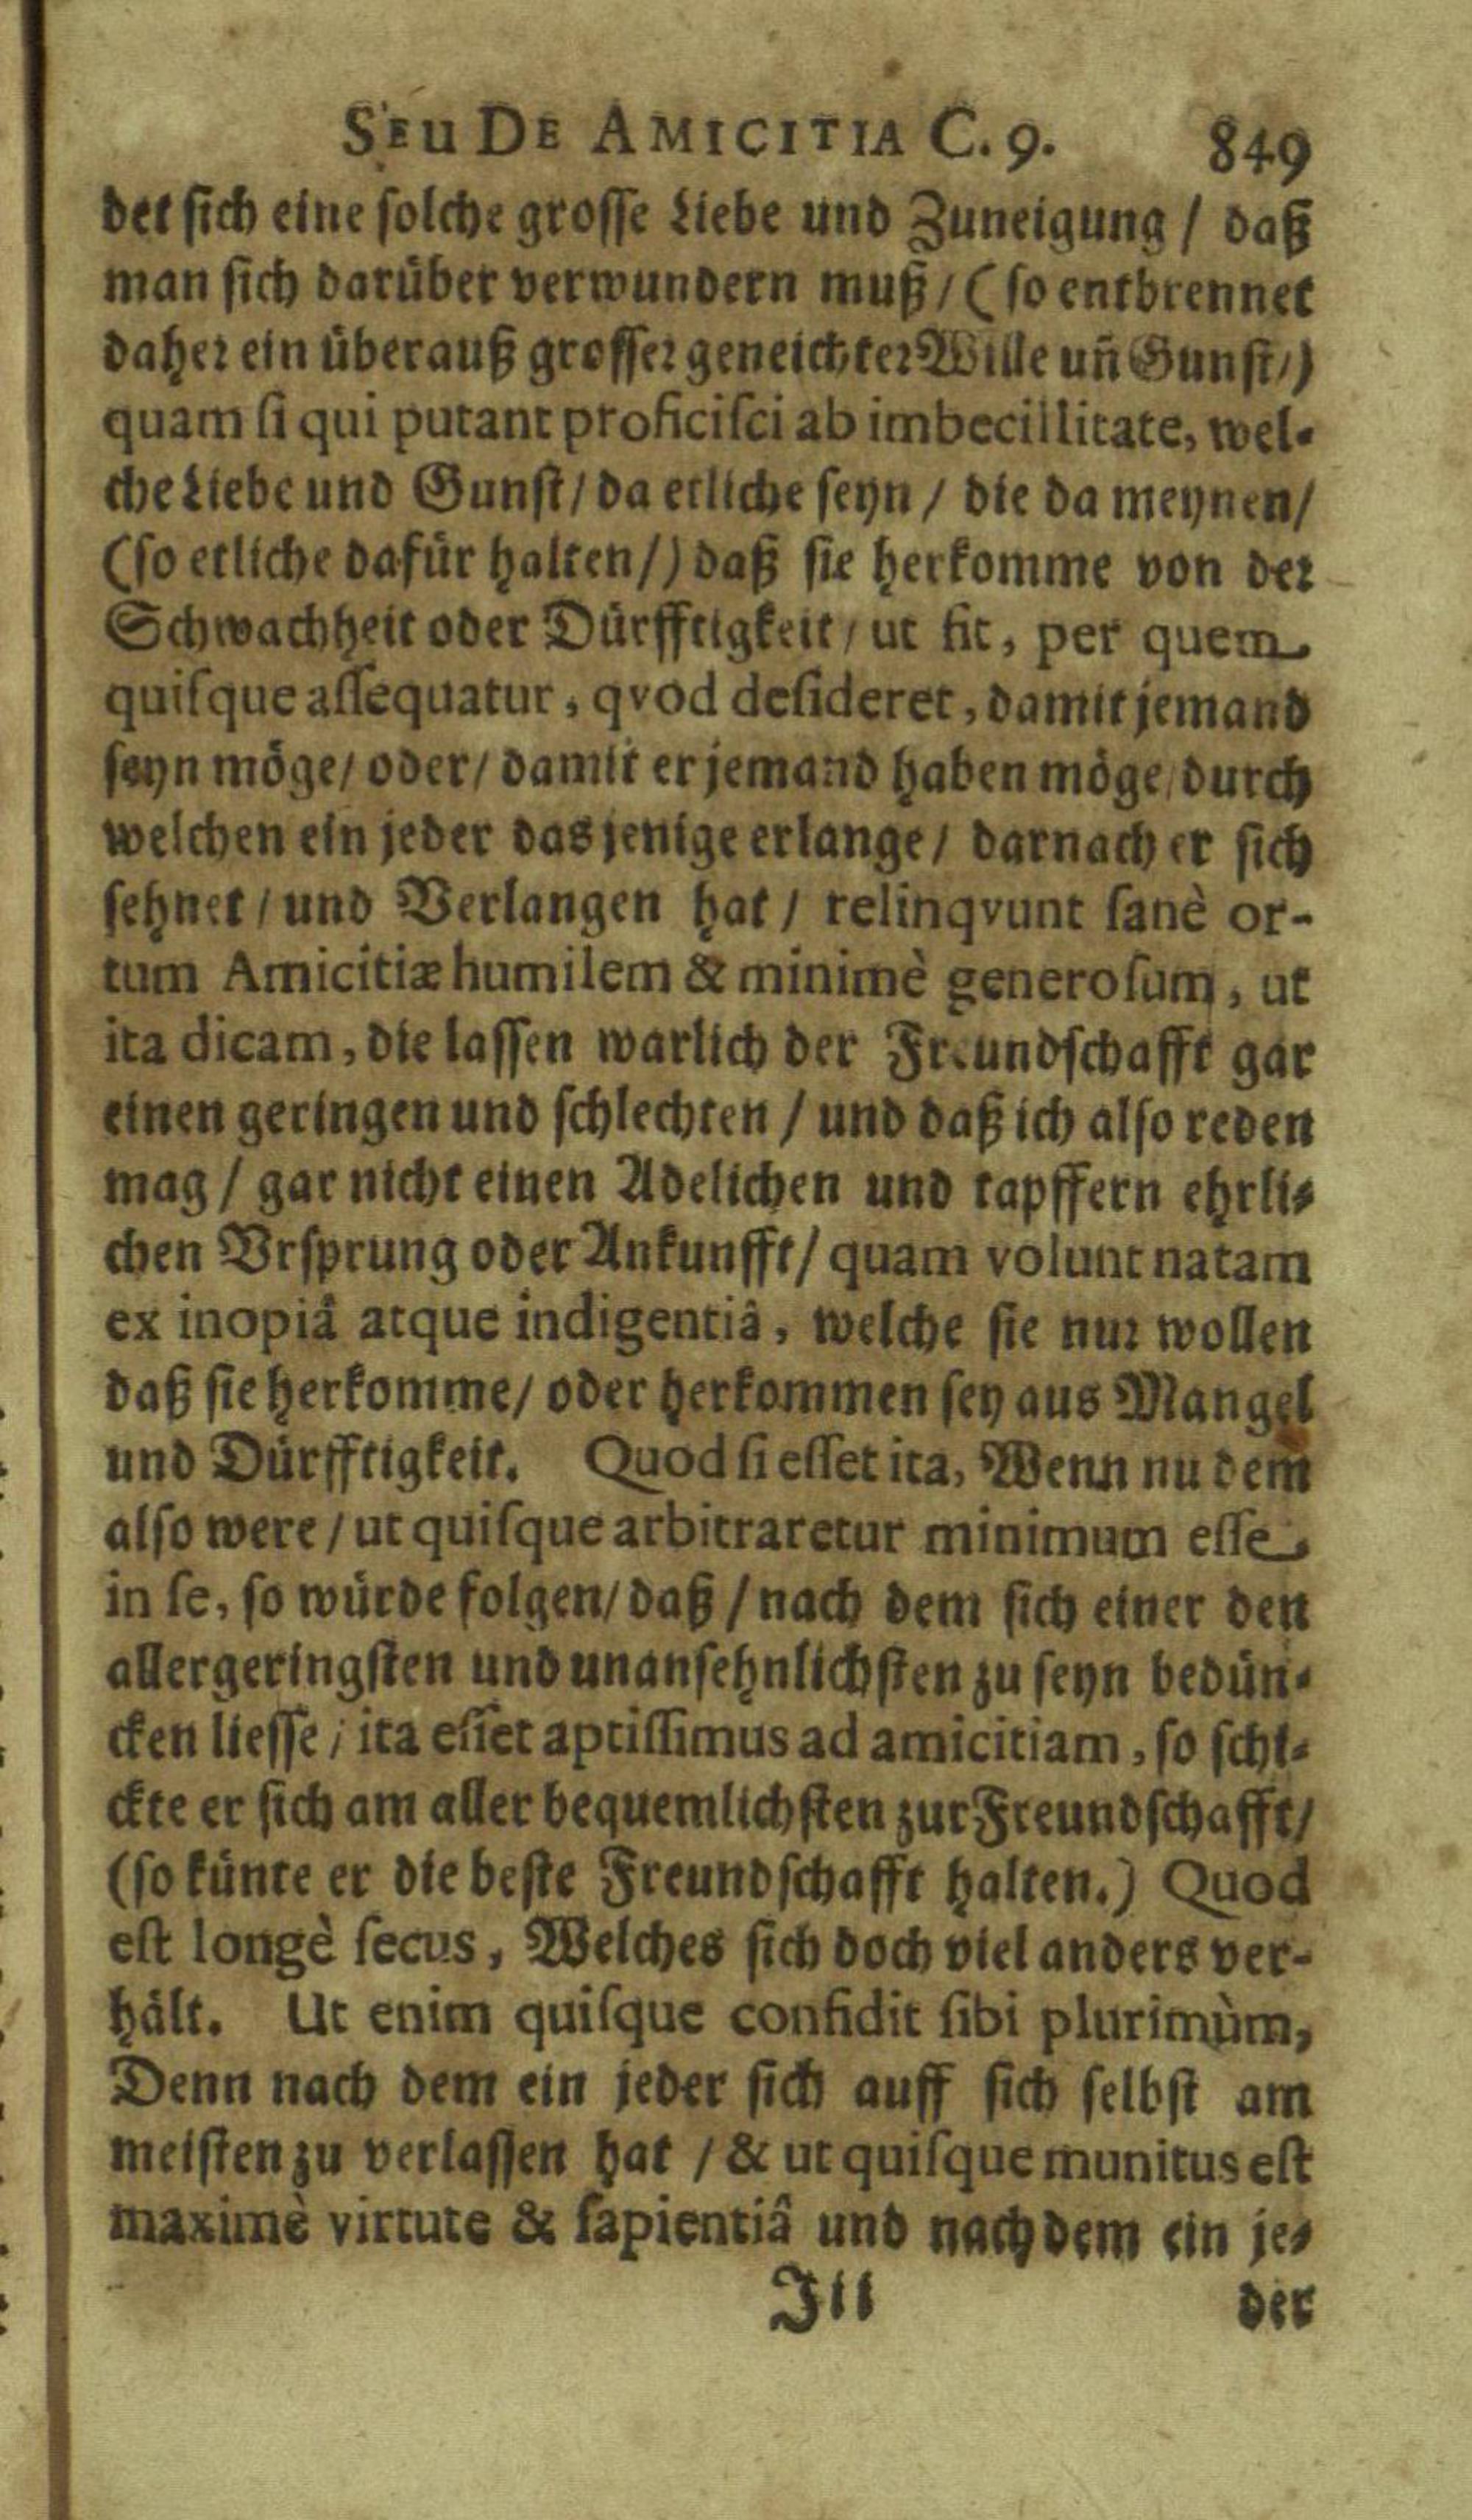 SEU DE AMICITIA C. 9. 849
det sich eine solche grosse Liebe und Zuneigung / daß
man sich darüber verwundern muß / (so entbrennet
daher ein überauß grosser geneichter Wille uñ Gunst /)
quam si qui putant proficisci ab imbecillitate, wel-
che Liebe und Gunst / da etliche seyn / die da meynen /
(so etliche dafür halten /) daß sie herkomme von der
Schwachheit oder Dürfftigkeit / ut sit, per quem
quisque assequatur, qvod desideret, damit jemand
seyn möge / oder / damit er jemand haben möge / durch
welchen ein jeder das jenige erlange / darnach er sich
sehnet / und Verlangen hat / relinqvunt sanè or-
tum Amicitiæ humilem & minimè generosum, ut
ita dicam, die lassen warlich der Freundschafft gar
einen geringen und schlechten / und daß ich also reden
mag / gar nicht einen Adelichen und tapffern ehrli-
chen Vrsprung oder Ankunfft / quam volunt natam
ex inopiâ atque indigentiâ, welche sie nur wollen
daß sie herkomme / oder herkommen sey aus Mangel
und Dürfftigkeit. Quod si esset ita, Wenn nu dem
also were / ut quisque arbitraretur minimum esse
in se, so würde folgen / daß / nach dem sich einer den
allergeringsten und unansehnlichsten zu seyn bedün-
cken liesse / ita esset aptissimus ad amicitiam, so schi-
ckte er sich am aller bequemlichsten zur Freundschafft /
(so künte er die beste Freundschafft halten.) Quod
est longè secus, Welches sich doch viel anders ver-
hält. Ut enim quisque confidit sibi plurimùm,
Denn nach dem ein jeder sich auff sich selbst am
meisten zu verlassen hat / & ut quisque munitus est
maximè virtute & sapientiâ und nach dem ein je-
Iii der